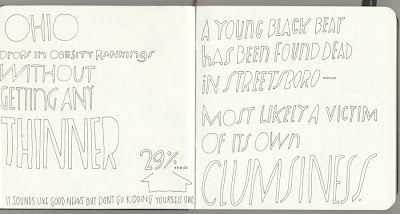 OHIO
DROPS IN OBESITY RANKINGS
WITHOUT
GETTING ANY
THINNER
29%
IT SOUNDS LIKE GOOD NEWS BUT DONT GO KIDDING YOURSELF OHIO
A YOUNG BLACK BEAR
HAS BEEN FOUND DEAD
IN STREETSBORO
MOST LIKELY A VICTIM
OF ITS OWN
CLUMSINESS.